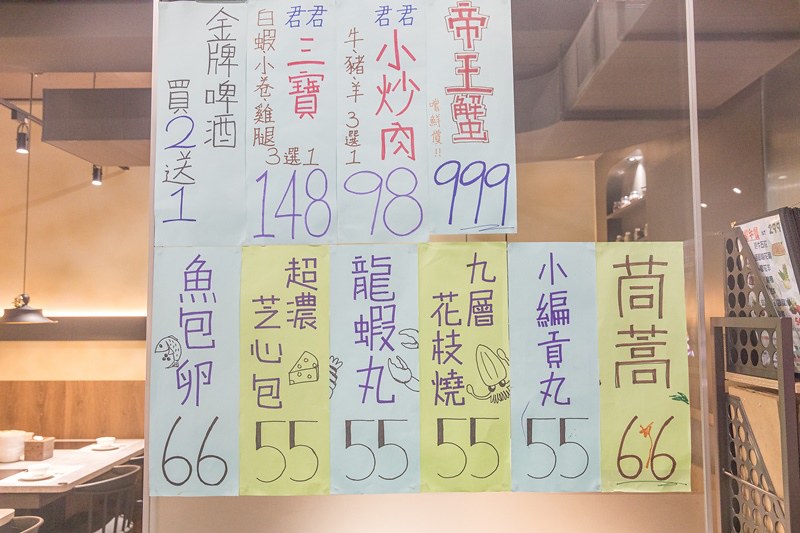 金牌啤酒
買2送1
君君
三寶
白蝦小卷雞腿
3選1
148
君君
小炒肉
牛、豬、羊3選1
98
帝王蟹
嚐鮮價!!
999
魚包卵
66
超濃
芝心包
55
龍蝦丸
55
九層
花枝燒
55
小編貢丸
55
茼蒿
66
299